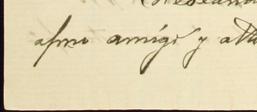 afmo amigo y att